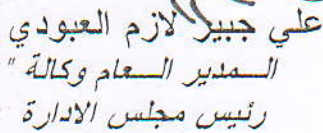 علي جبير لازم العبودي
المدير العام وكالة "
رئيس مجلس الادارة